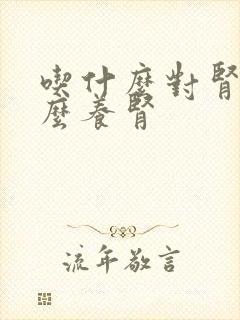 喫什麼對腎
麼養腎
流年敬言